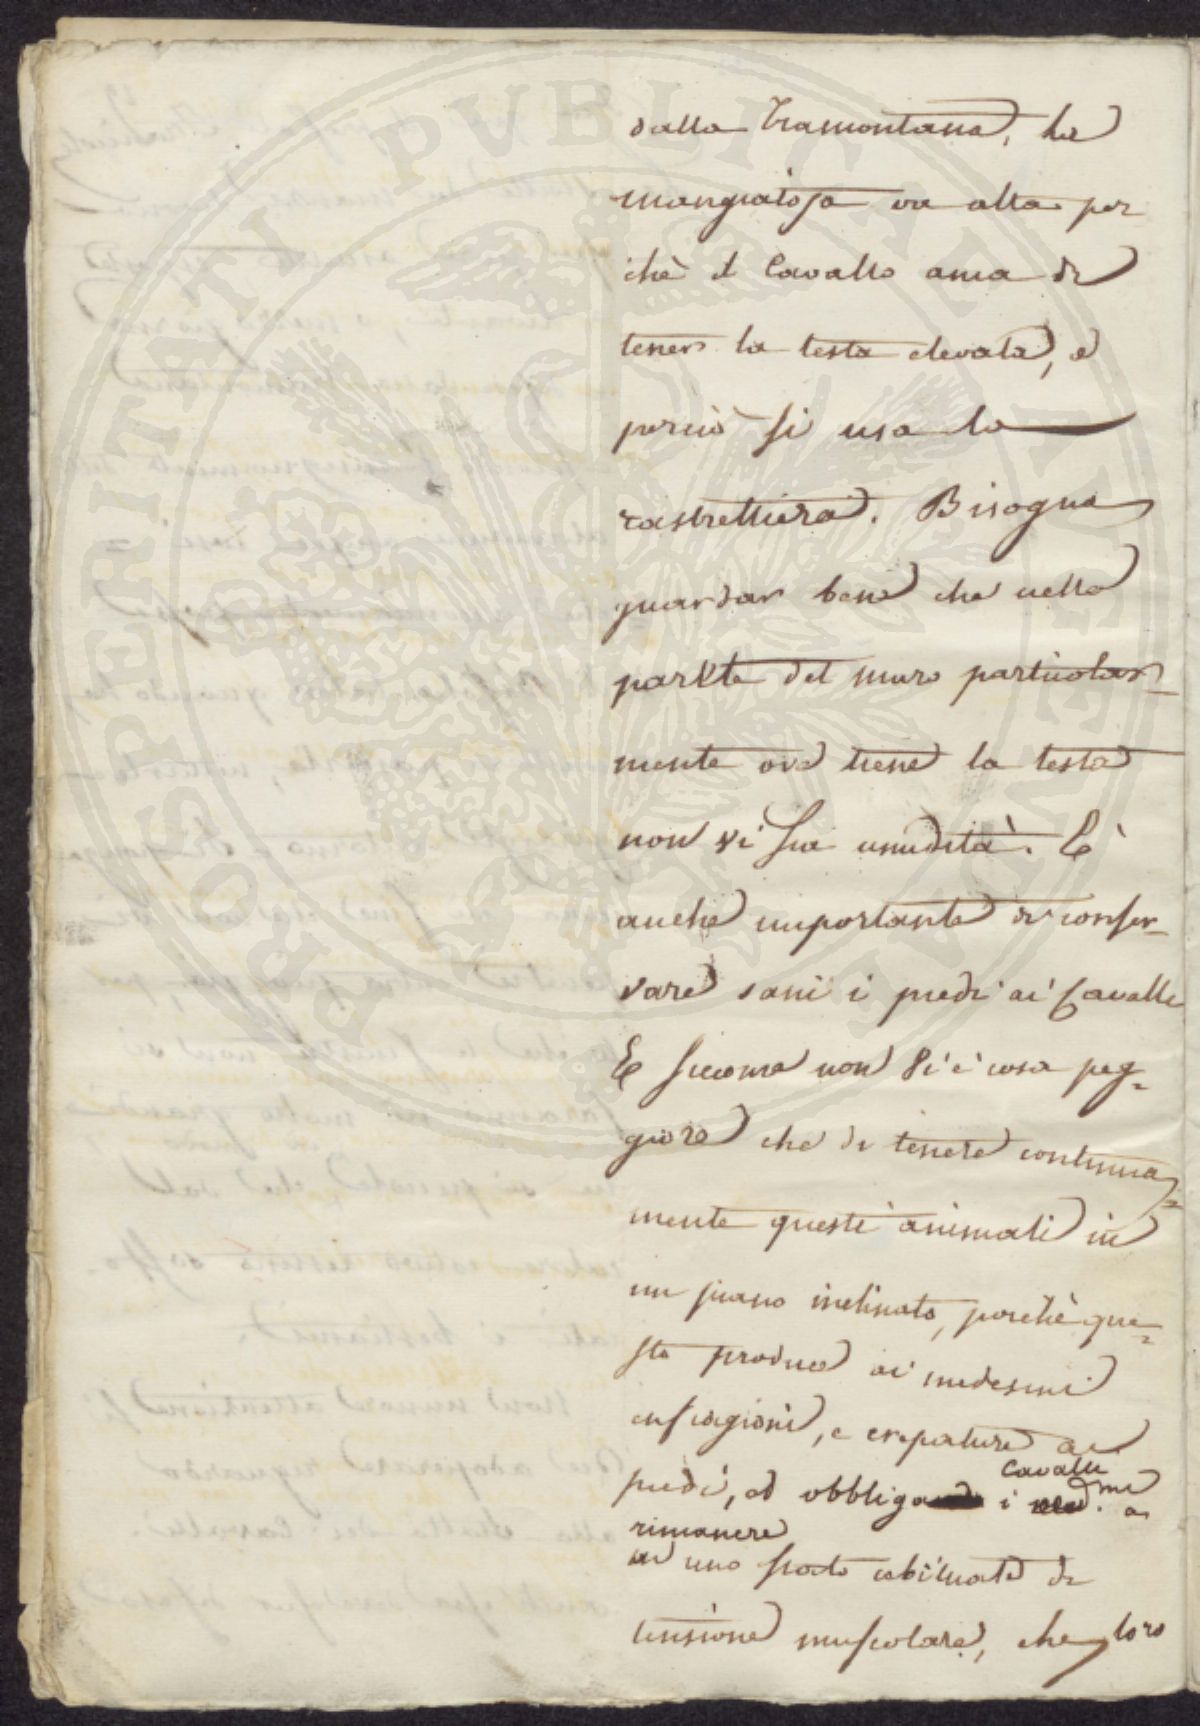 dalla Tramontana, la
mangiatoja va alta per
chè il Cavallo ama di
tener la testa elevata, e
perciò si usa la
rastrelliera. Bisogna
guardar bene che nella
parte del muro particolar-
mente ove tiene la testa
non vi sia umidità. È
anche importante di conser-
vare sani i piedi ai Cavalli
E siccome non vi è cosa peg=
giore che di tenere continua=
mente questi animali in
un piano inclinato, perchè que=
sto produce ai medesimi
enfiagioni, e crepature ai
piedi, ed obbliga i Cavalli med.mi a
rimanere
in uno stato abituale di
tensione muscolare, che loro
PROSPERITATI PVBLICAE AVGENDAE